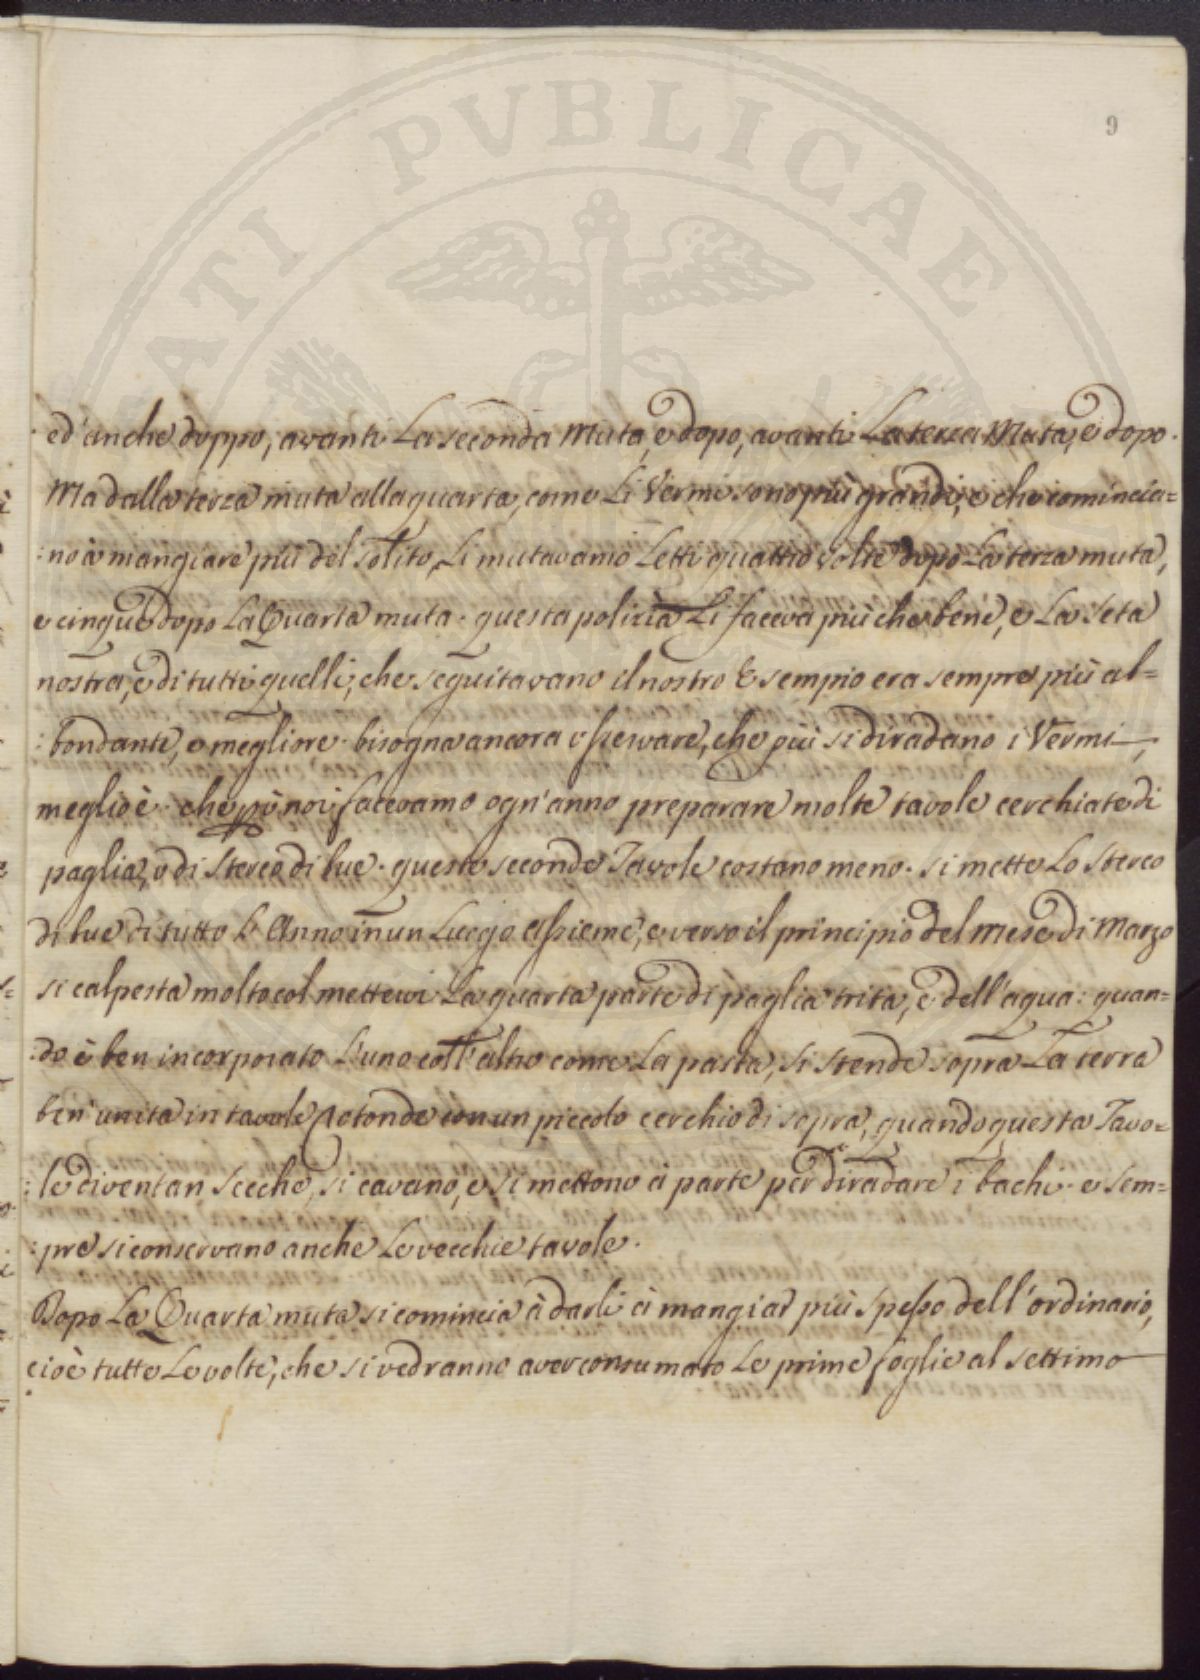 PVBLICAE
9
ed' anche doppo, avanti La seconda Muta, e dopo, avanti La terza Muta, e dopo.
Ma dalla terza muta alla quarta, come Li Vermi sono più grandi, e che comincia=
:no à mangiare più del solito, Li mutavamo Letti quattro volte dopo La terza muta,
e cinque dopo La Quarta muta. questa polizia Li faceva più che bene, e La Seta
nostra, e di tutti quelli, che seguitavano il nostro Esempio era sempre più al=
:bondante, e megliore. bisogna ancora osservare, che più si diradano i Vermi,
meglio è. che però noi facevamo ogn' anno preparare molte tavole cerchiate di
paglia, o di Sterco di bue. queste seconde Tavole costano meno. si mette Lo Sterco
di bue di tutto L' Anno in un Luogo assieme, e verso il principio del Mese di Marzo
si calpesta molto col mettervi La quarta parte di paglia trita, e dell' aqua: quan=
:do è ben incorporato L'uno coll' altro come La pasta, si stende sopra La terra
ben' unita in tavole Rotonde con un piccolo cerchio di sopra, quando questa Tavo=
:le diventan Secche, si cavano, e si mettono à parte per diradare i bachi. e Sem=
:pre si conservano anche Le vecchie tavole.
Dopo La Quarta muta si comincia à darli à mangiar più spesso dell' ordinario,
cioè tutte Le volte, che si vedranno aver consumato Le prime foglie al settimo